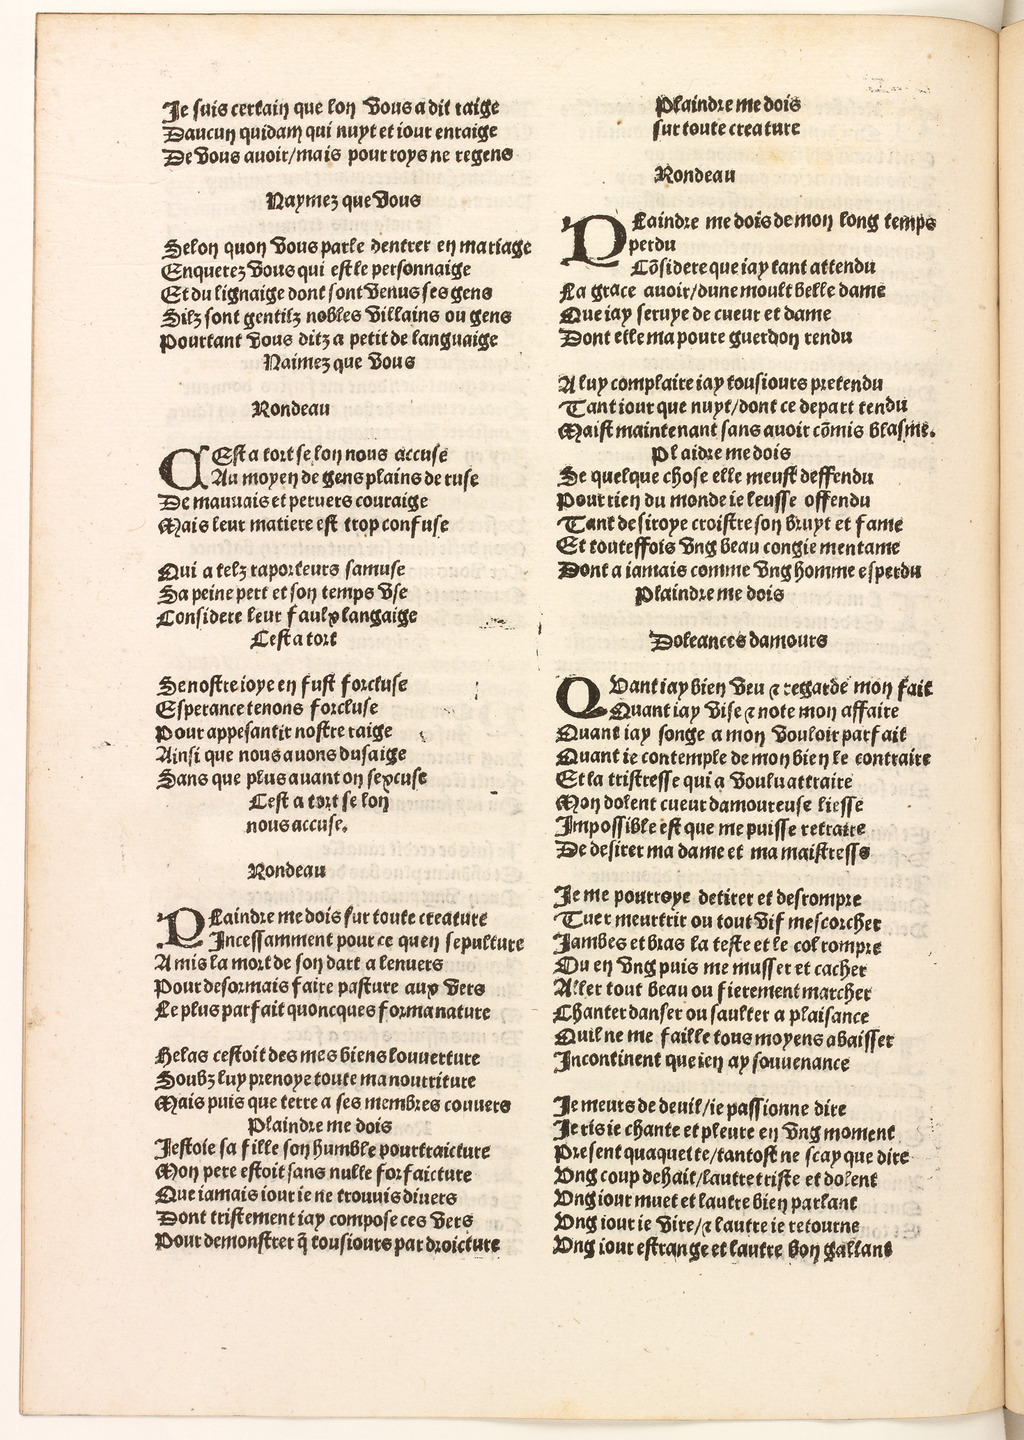 Je suis certain que lon vous a dit raige
Daucun quidam qui nuyt et iour enraige
De vous auoir/mais pour roys ne regens
Naymez que vous
Selon quon vous parle dentrer en mariage
Enquerez vous qui est le personnaige
Et du lignaige dont sont venus ses gens
Silz sont gentilz nobles villains ou gens
Pourtant vous ditz a petit de languaige
Naimez que vous
Rondeau
CEst a tort se lon nous accuse
Au moyen de gens plains de ruse
De mauuais et peruers couraige
Mais leur matiere est trop confuse
Qui a telz raporteurs samuse
Sa peine pert et son temps vse
Considere leur faulx langaige
Cest a tort
Se nostre ioye en fust forcluse
Esperance tenons forcluse
Pour appesantir nostre raige
Ainsi que nous auons dusaige
Sans que plus auant on sexcuse
Cest a tort se lon
nous accuse.
Rondeau
PLaindre me dois sur toute creature
Incessamment pour ce quen sepulture
A mis la mort de son dart a lenuers
Pour desormais faire pasture aux vers
Le plus parfait quoncques forma nature
Helas cestoit des mes biens louuerture
Soubz luy prenoye toute ma nourriture
Mais puis que terre a ses membres couuers
Plaindre me dois
Iestoie sa fille son humble pourtraicture
Mon pere estoit sans nulle forfaicture
Que iamais iour ie ne trouuis diuers
Dont tristement iay compose ces vers
Pour demonstrer q̃ tousiours par droicture
Plaindre me dois
sur toute creature
Rondeau
PLaindre me dois de mon long temps
perdu
Cõsidere que iay tant attendu
La grace auoir/dune moult belle dame
Que iay seruye de cueur et dame
Dont elle ma poure guerdon rendu
A luy complaire iay tousiours pretendu
Tant iour que nuyt/dont ce depart tendu
Maist maintenant sans auoir cõmis blasme.
Plaidre me dois
Se quelque chose elle meust deffendu
Pour rien du monde ie leusse offendu
Tant desiroye croistre son bruyt et fame
Et touteffois vng beau congie mentame
Dont a iamais comme vng homme esperdu
Plaindre me dois
Doleances damours
QVant iay bien veu ⁊ regarde mon fait
Quant iay vise ⁊ note mon affaire
Quant iay songe a mon vouloir parfait
Quant ie contemple de mon bien le contraire
Et la tristresse qui a voulu attraire
Mon dolent cueur damoureuse liesse
Impossible est que me puisse retraire
De desirer ma dame et ma maistresss
Ie me pourroye detirer et desrompre
Tuer meurtrir ou tout vif mescorcher
Iambes et bras la teste et le col rompre
Ou en vng puis me musser et cacher
Aller tout beau ou fierement marcher
Chanter danser ou saulter a plaisance
Quil ne me faille tous moyens abaisser
Incontinent que ien ay souuenance
Ie meurs de deuil/ie passionne dire
Ie ris ie chante et pleure en vng moment
Present quaquette/tantost ne scay que dire
Vng coup dehait/lautre triste et dolent
Vng iour muet et lautre bien parlant
Vng iour ie vire/⁊ lautre ie retourne
Vng iour estrange et lautre bon gallant